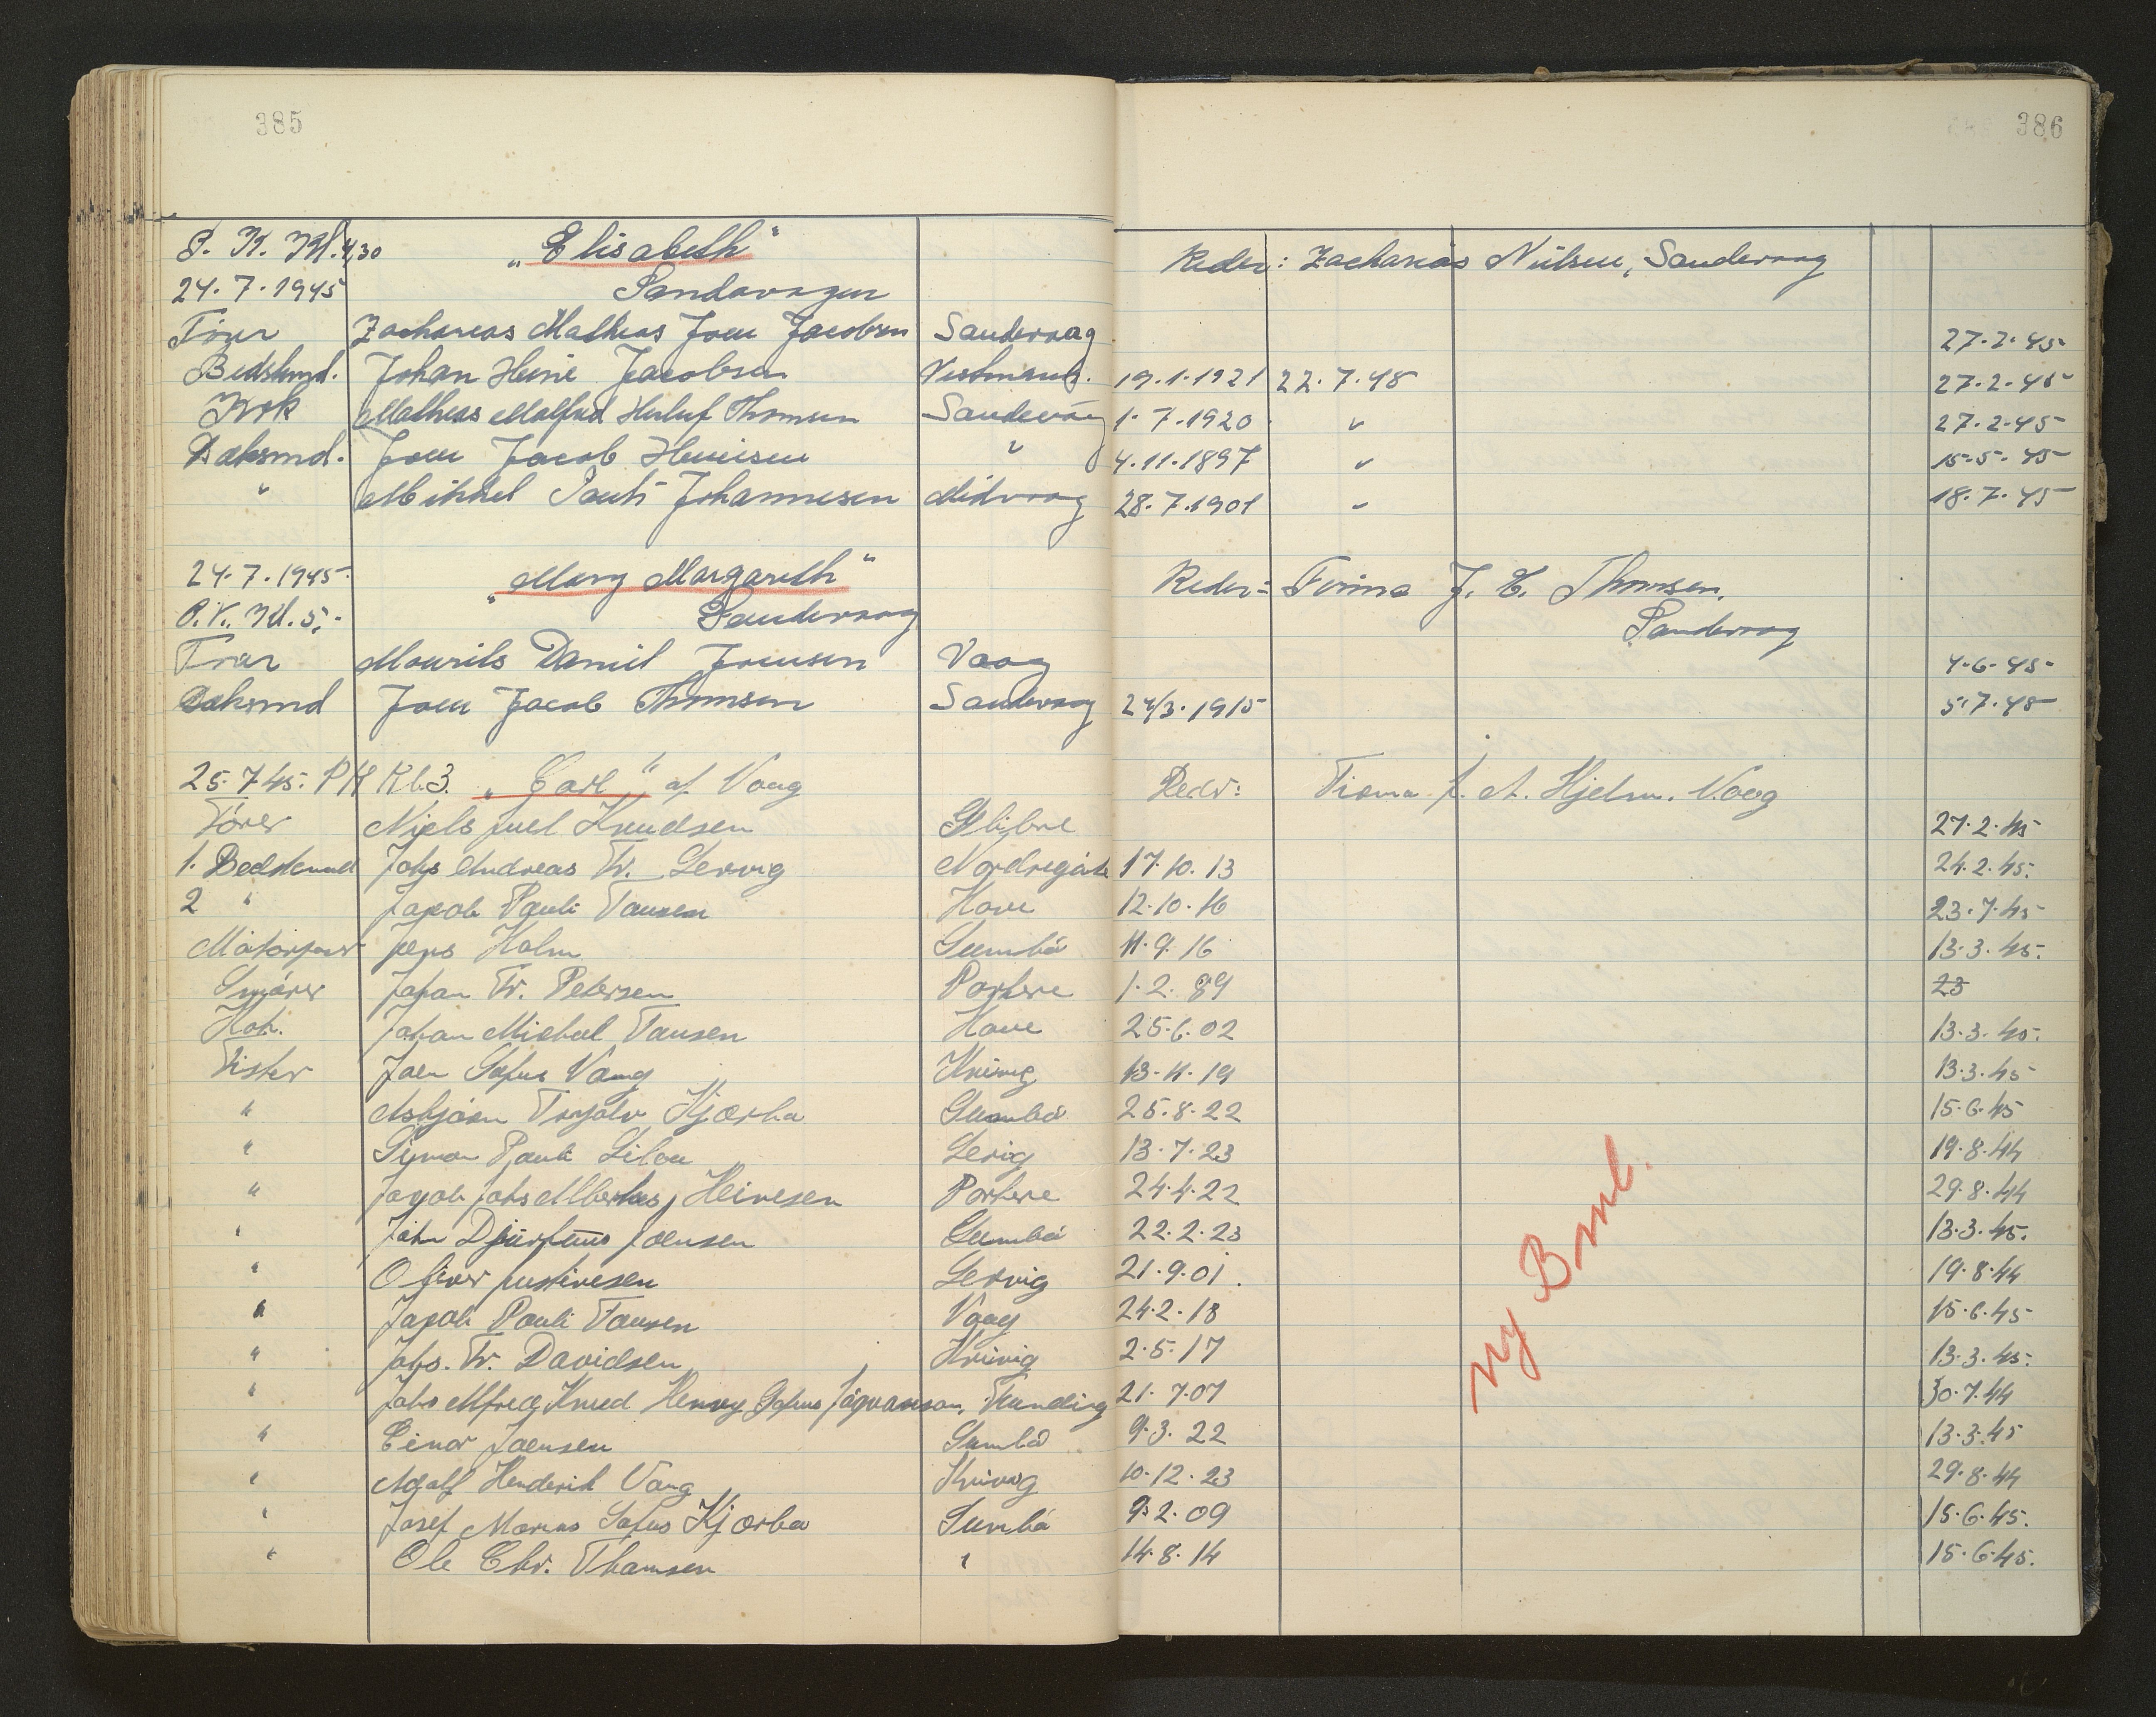 385
386
P. K. Kl. 4,30 „Elisabeth“ Reder: Zacharias Nielsen, Sandevaag
24.7.1945 Sandavagur
Förer Zacharias Mathias Joen Jacobsen Sandevaag 27.2.45
Bedstmd. Johan Heine Jacobsen Vestmanh. 19.1.1921 22.7.45 27.2.45
Kok Mathias Malfred Huluf Thomsen Sandevåg 1.7.1920 " 27.2.45
Daksmd. Joen Jacob Heinesen " 4.11.1897 " 15.5.45
" Mikkel Pauli Johannesen Midvaag 28.7.1901 " 18.7.45
24.7.1945 „Mary Margareth“ Reder: Firma J. H. Thomsen,
P.K. Kl. 5,- Sandevaag Sandevaag
Förer Mourits Daniel Joensen Vaag 4.6.45
Daksmd Joen Jacob Thomsen Sandevaag 24/3.1915 5.7.45
25.7.45. PK Kl. 3. „Carl“ af Vaag Redr: Firma f. A. Hjelm. Vaag
Förer Niels Juel Knudsen Glibre 27.2.45
1. Bedstmand Johs Andreas Fr. Lervig Nordregöte 17.10.13 24.2.45.
2 " Jacob Pauli Tausen Hove 12.10.16 23.7.45
Motorpas Jens Holm Sumbö 11.9.16 13.3.45.
Smörer Johan Fr. Petersen Porkere 1.2.89 23
Kok. Johan Michael Tausen Hove 25.6.02 13.3.45.
Fisker Joen Sofus Vang Knivig 13.11.19 13.3.45
" Asbjörn Kjærbo Sumbö 25.8.22 15.6.45
" Simon Pauli Lervig 13.7.23 19.8.44
" Jacob Johs Albertus Heinesen Porkere 24.4.22 29.8.44
" John Djurhuus Joensen Sumbö 22.2.23 13.3.45.
" Oliver Justinesen Lervig 21.9.01. 19.8.44
" Jacob Pauli Tausen Vaag 24.2.18 15.6.45
" Johs. Fr. Davidsen Knivig 2.5.17 13.3.45.
" Johs Alfred Knud Henry Sofus Jógvanson, Funding 21.7.07 30.7.44
" Einar Joensen Sumbö 9.3.22 13.3.45
" Adolf Henderik Vang Knivig 10.12.23 29.8.44
" Josef Marius Sofus Kjærbo Sumbö 9.2.09 15.6.45.
" Ole Chr. Thomsen " 14.8.14 15.6.45.
ny Bml.